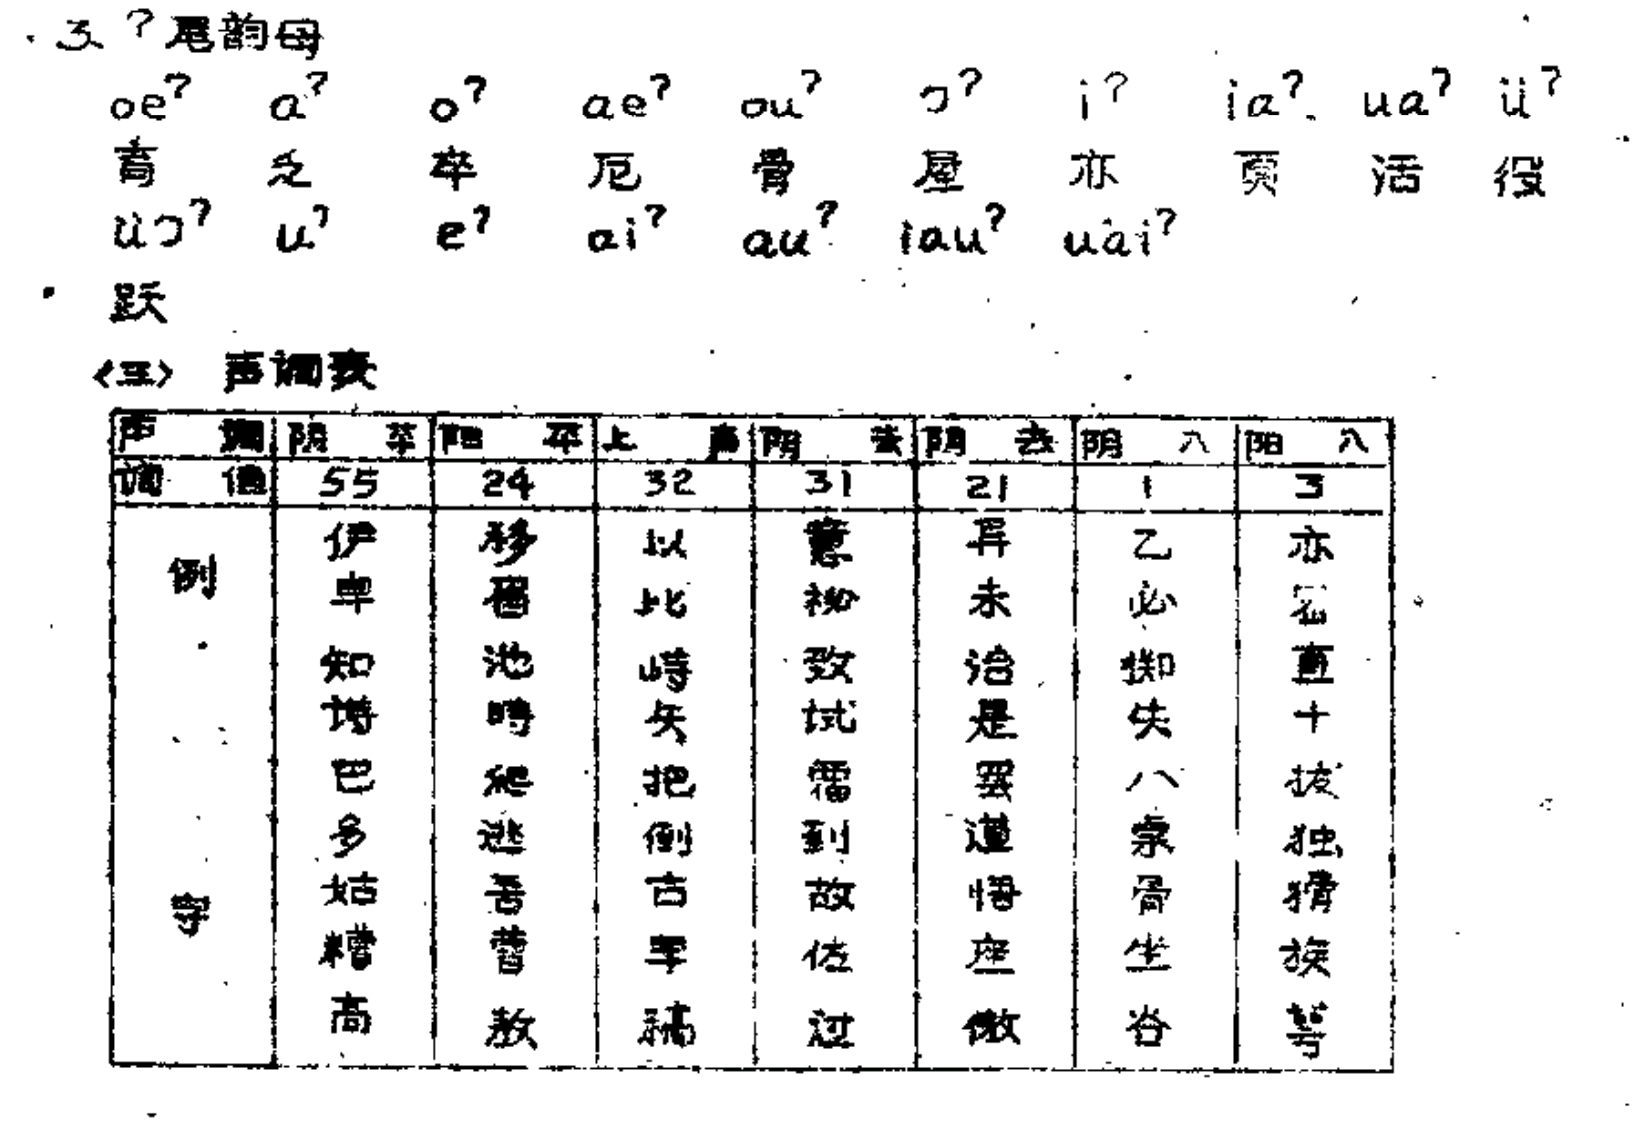 3. ?尾韵母
oe? a? o? ae? ou? ɔ? i? ia? ua? ü?
育 乏 卒 厄 骨 屋 亦 页 活 役
üɔ? u? e? ai? au? iau? uai?
跃
<三> 声调表
声调 阴平 阳平 上声 阴去 阴去 阴入 阳入
调值 55 24 32 31 21 1 3
例字
伊 移 以 意 异 乙 亦
卑 比 秘 未 必 密
知 池 峙 致 治 蜘 直
诗 时 矢 试 是 失 十
巴 爬 把 霸 罢 八 拔
多 逃 倒 到 道 独
姑 吾 古 故 悟 骨 猾
糟 曹 早 佐 座 坐 族
高 敖 稿 过 傲 谷